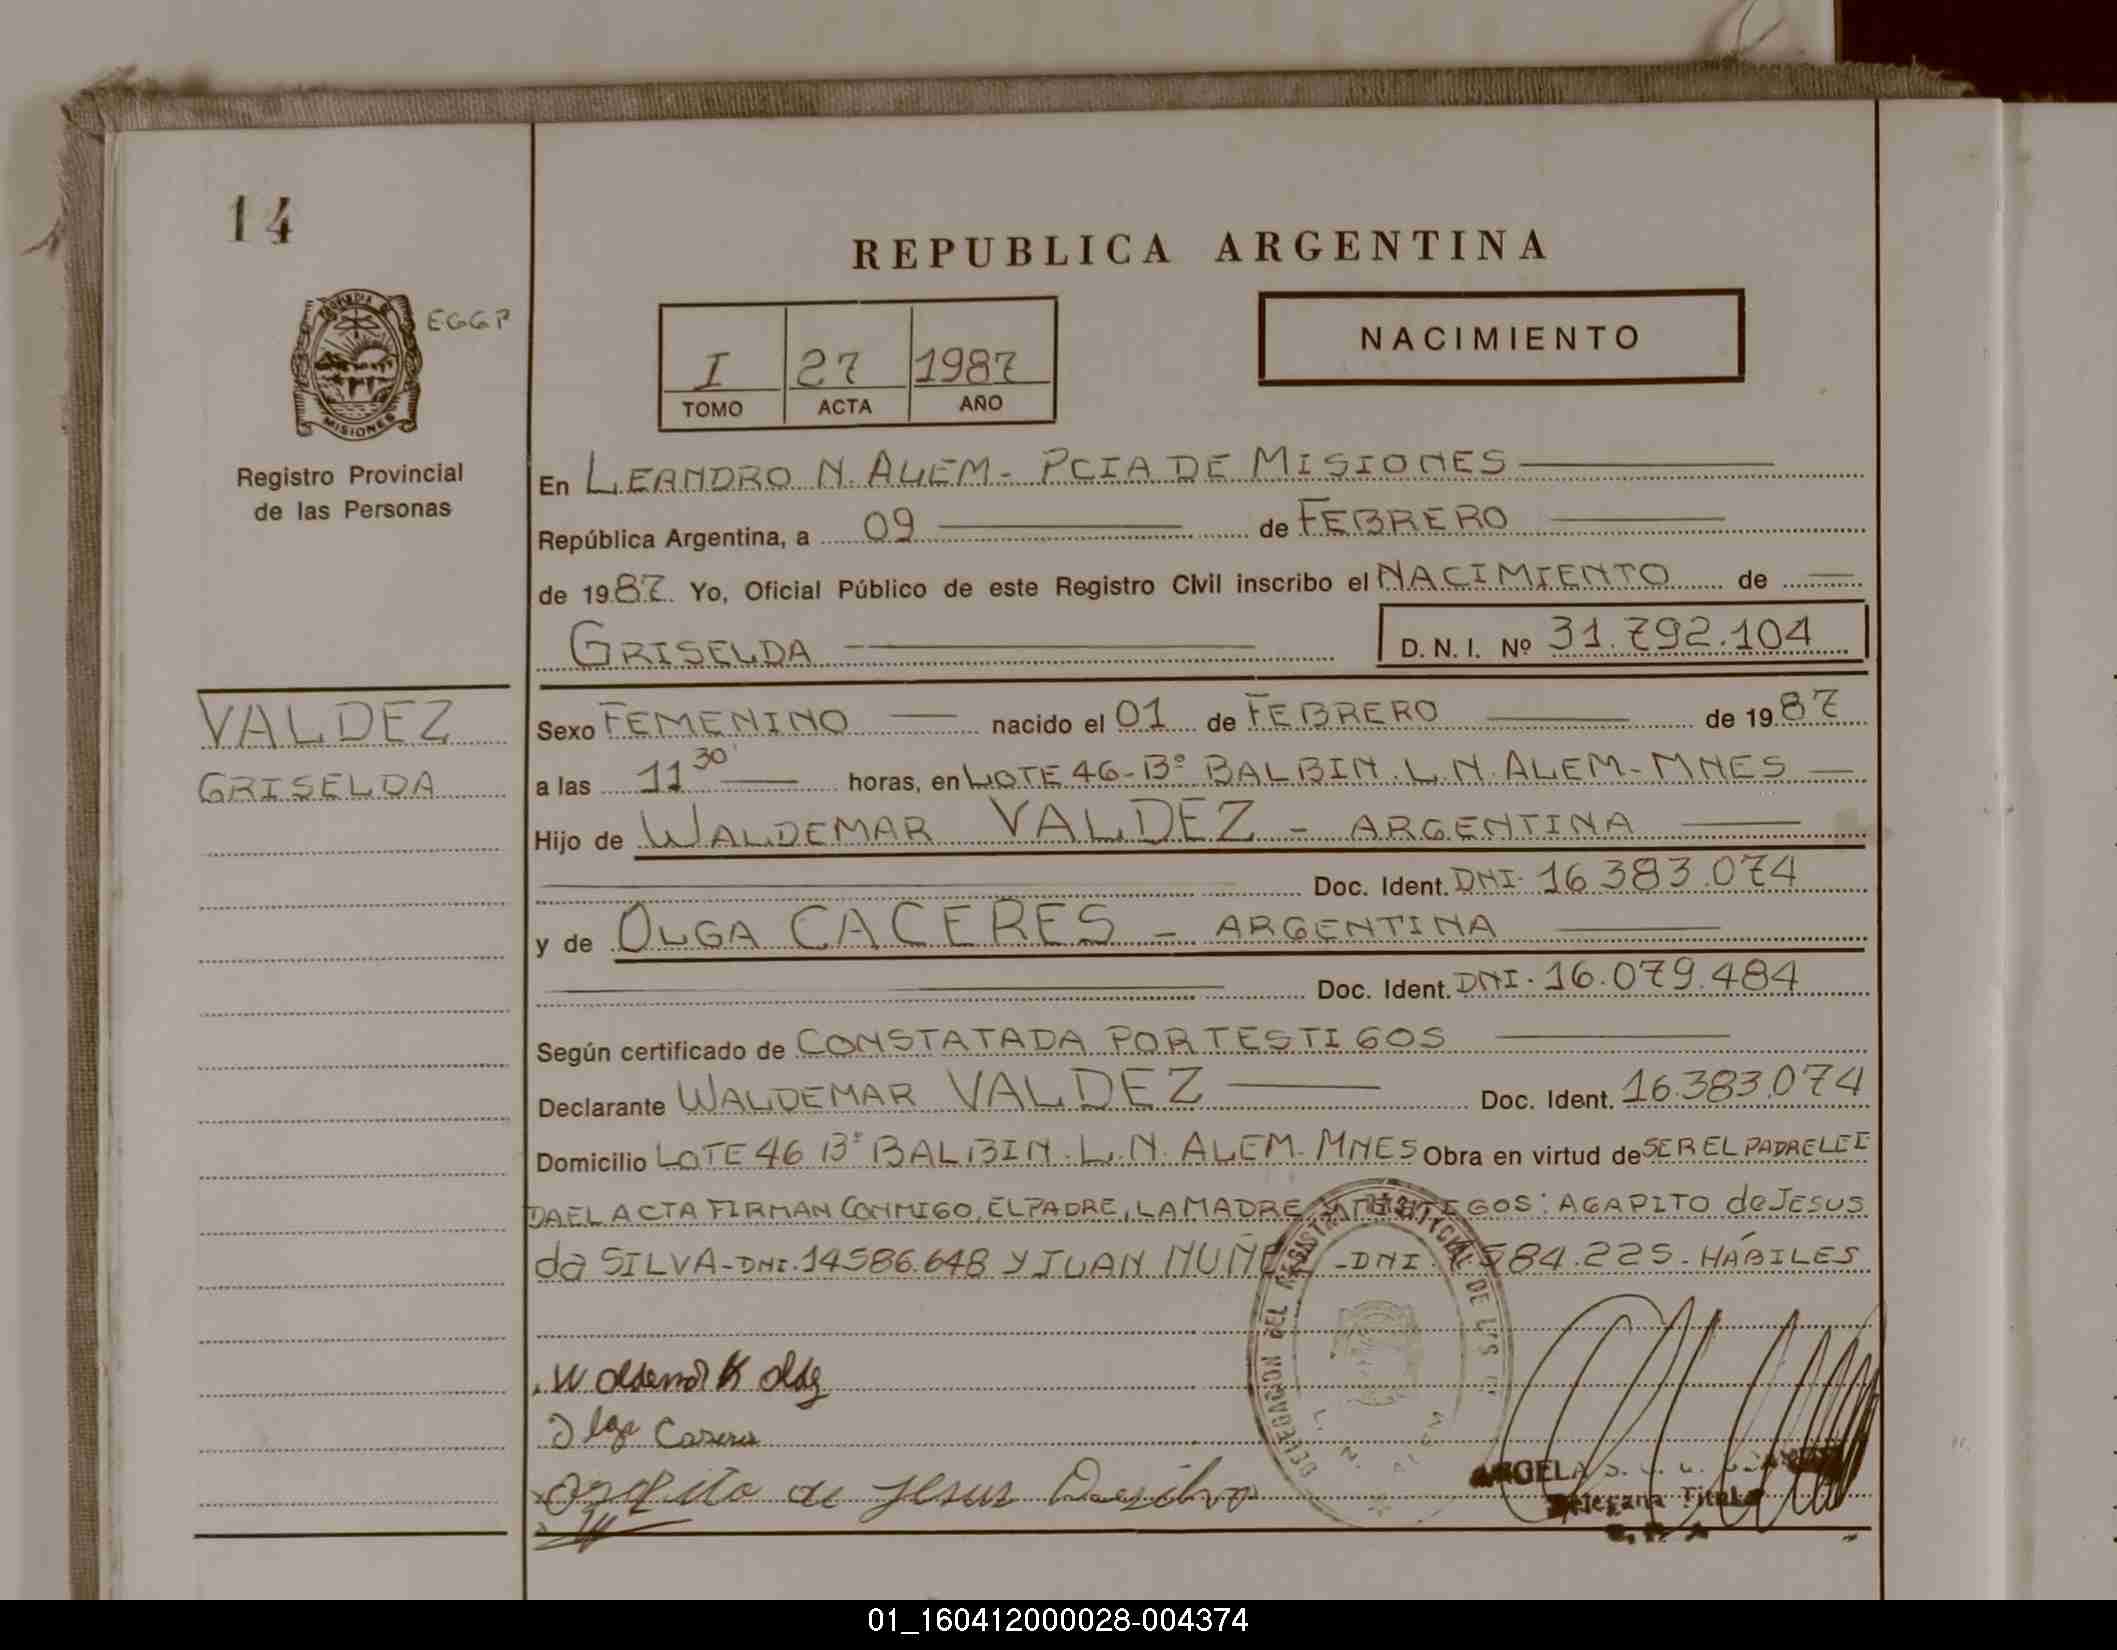 14
REPUBLICA ARGENTINA
EGGP
MISIONES
I 27 1987
TOMO ACTA AÑO
NACIMIENTO
Registro Provincial
de las Personas
En LEANDRO N. ALEM - PCIA DE MISIONES
República Argentina, a 09 de FEBRERO
de 1987. Yo, Oficial Público de este Registro Civil inscribo el NACIMIENTO de
GRISELDA D. N. I. Nº 31.792.104
VALDEZ
GRISELDA
Sexo FEMENINO nacido el 01 de FEBRERO de 1987
a las 11 30' horas, en LOTE 46-Bº BALBIN. L.N. ALEM-MNES
Hijo de WALDEMAR VALDEZ - ARGENTINA
Doc. Ident. DNI. 16.383.074
y de OLGA CACERES - ARGENTINA
Doc. Ident. DNI. 16.079.484
Según certificado de CONSTATADA POR TESTIGOS
Declarante WALDEMAR VALDEZ Doc. Ident. 16.383.074
Domicilio LOTE 46 Bº BALBIN. L.N. ALEM-MNES Obra en virtud de SER EL PADRE LEI
DA EL ACTA FIRMAN CONMIGO, EL PADRE, LA MADRE Y TESTIGOS: AGAPITO de JESUS
da SILVA-DNI. 14.586.648 Y JUAN - DNI. 584.225 - HÁBILES
DELEGACION DEL REGISTRO DE LAS
Olga Caseres
de Jesus Dasilva
ANGELA
Delegada Titular
01_160412000028-004374